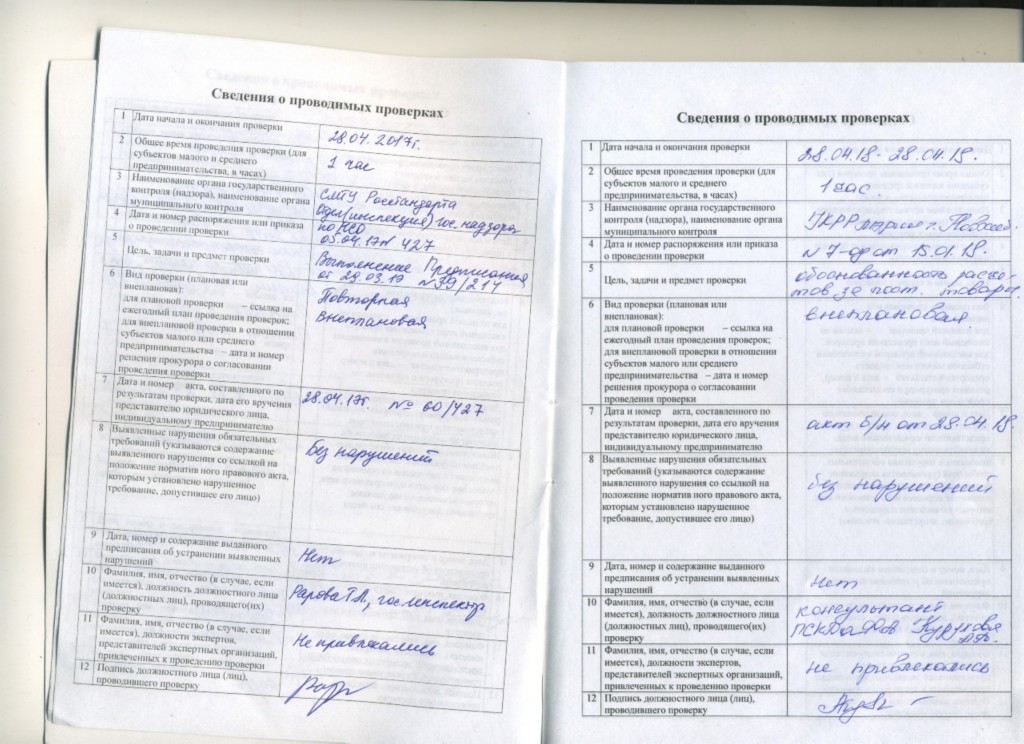 Сведения о проводимых проверках
1 Дата начала и окончания проверки
28.04.2017г.
2 Общее время проведения проверки (для
субъектов малого и среднего
предпринимательства, в часах)
1 час
3 Наименование органа государственного
контроля (надзора), наименование органа
муниципального контроля
СМТУ Росстандарта
Отдел (инспекция) гос. надзора
по НСО
4 Дата и номер распоряжения или приказа
о проведении проверки
05.04.17 № 427
5
Цель, задачи и предмет проверки
Выполнение Предписания
от 29.03.17 №59/214
6 Вид проверки (плановая или
внеплановая):
для плановой проверки – ссылка на
ежегодный план проведения проверок;
для внеплановой проверки в отношении
субъектов малого или среднего
предпринимательства – дата и номер
решения прокурора о согласовании
проведения проверки
Повторная
внеплановая
7 Дата и номер акта, составленного по
результатам проверки, дата его вручения
представителю юридического лица,
индивидуальному предпринимателю
28.04.17г. № 60/427
8 Выявленные нарушения обязательных
требований (указываются содержание
выявленного нарушения со ссылкой на
положение норматив ного правового акта,
которым установлено нарушенное
требование, допустившее его лицо)
Без нарушений
9 Дата, номер и содержание выданного
предписания об устранении выявленных
нарушений
Нет
10 Фамилия, имя, отчество (в случае, если
имеется), должность должностного лица
(должностных лиц), проводящего(их)
проверку
гос. инспектор
11 Фамилия, имя, отчество (в случае, если
имеется), должности экспертов,
представителей экспертных организаций,
привлеченных к проведению проверки
Не привлекались
12 Подпись должностного лица (лиц),
проводившего проверку
Сведения о проводимых проверках
1 Дата начала и окончания проверки
28.04.18- 28.04.18.
2 Общее время проведения проверки (для
субъектов малого и среднего
предпринимательства, в часах)
1 час.
3 Наименование органа государственного
контроля (надзора), наименование органа
муниципального контроля
мэрии г. Новосиб.
4 Дата и номер распоряжения или приказа
о проведении проверки
№ 7-ор от 15.01.18.
5
Цель, задачи и предмет проверки
обоснованность расче-
тов за пост. товары
6 Вид проверки (плановая или
внеплановая):
для плановой проверки – ссылка на
ежегодный план проведения проверок;
для внеплановой проверки в отношении
субъектов малого или среднего
предпринимательства – дата и номер
решения прокурора о согласовании
проведения проверки
внеплановая
7 Дата и номер акта, составленного по
результатам проверки, дата его вручения
представителю юридического лица,
индивидуальному предпринимателю
акт б/н от 28.04.18.
8 Выявленные нарушения обязательных
требований (указываются содержание
выявленного нарушения со ссылкой на
положение норматив ного правового акта,
которым установлено нарушенное
требование, допустившее его лицо)
без нарушений
9 Дата, номер и содержание выданного
предписания об устранении выявленных
нарушений
нет
10 Фамилия, имя, отчество (в случае, если
имеется), должность должностного лица
(должностных лиц), проводящего(их)
проверку
консультант
11 Фамилия, имя, отчество (в случае, если
имеется), должности экспертов,
представителей экспертных организаций,
привлеченных к проведению проверки
не привлекались
12 Подпись должностного лица (лиц),
проводившего проверку